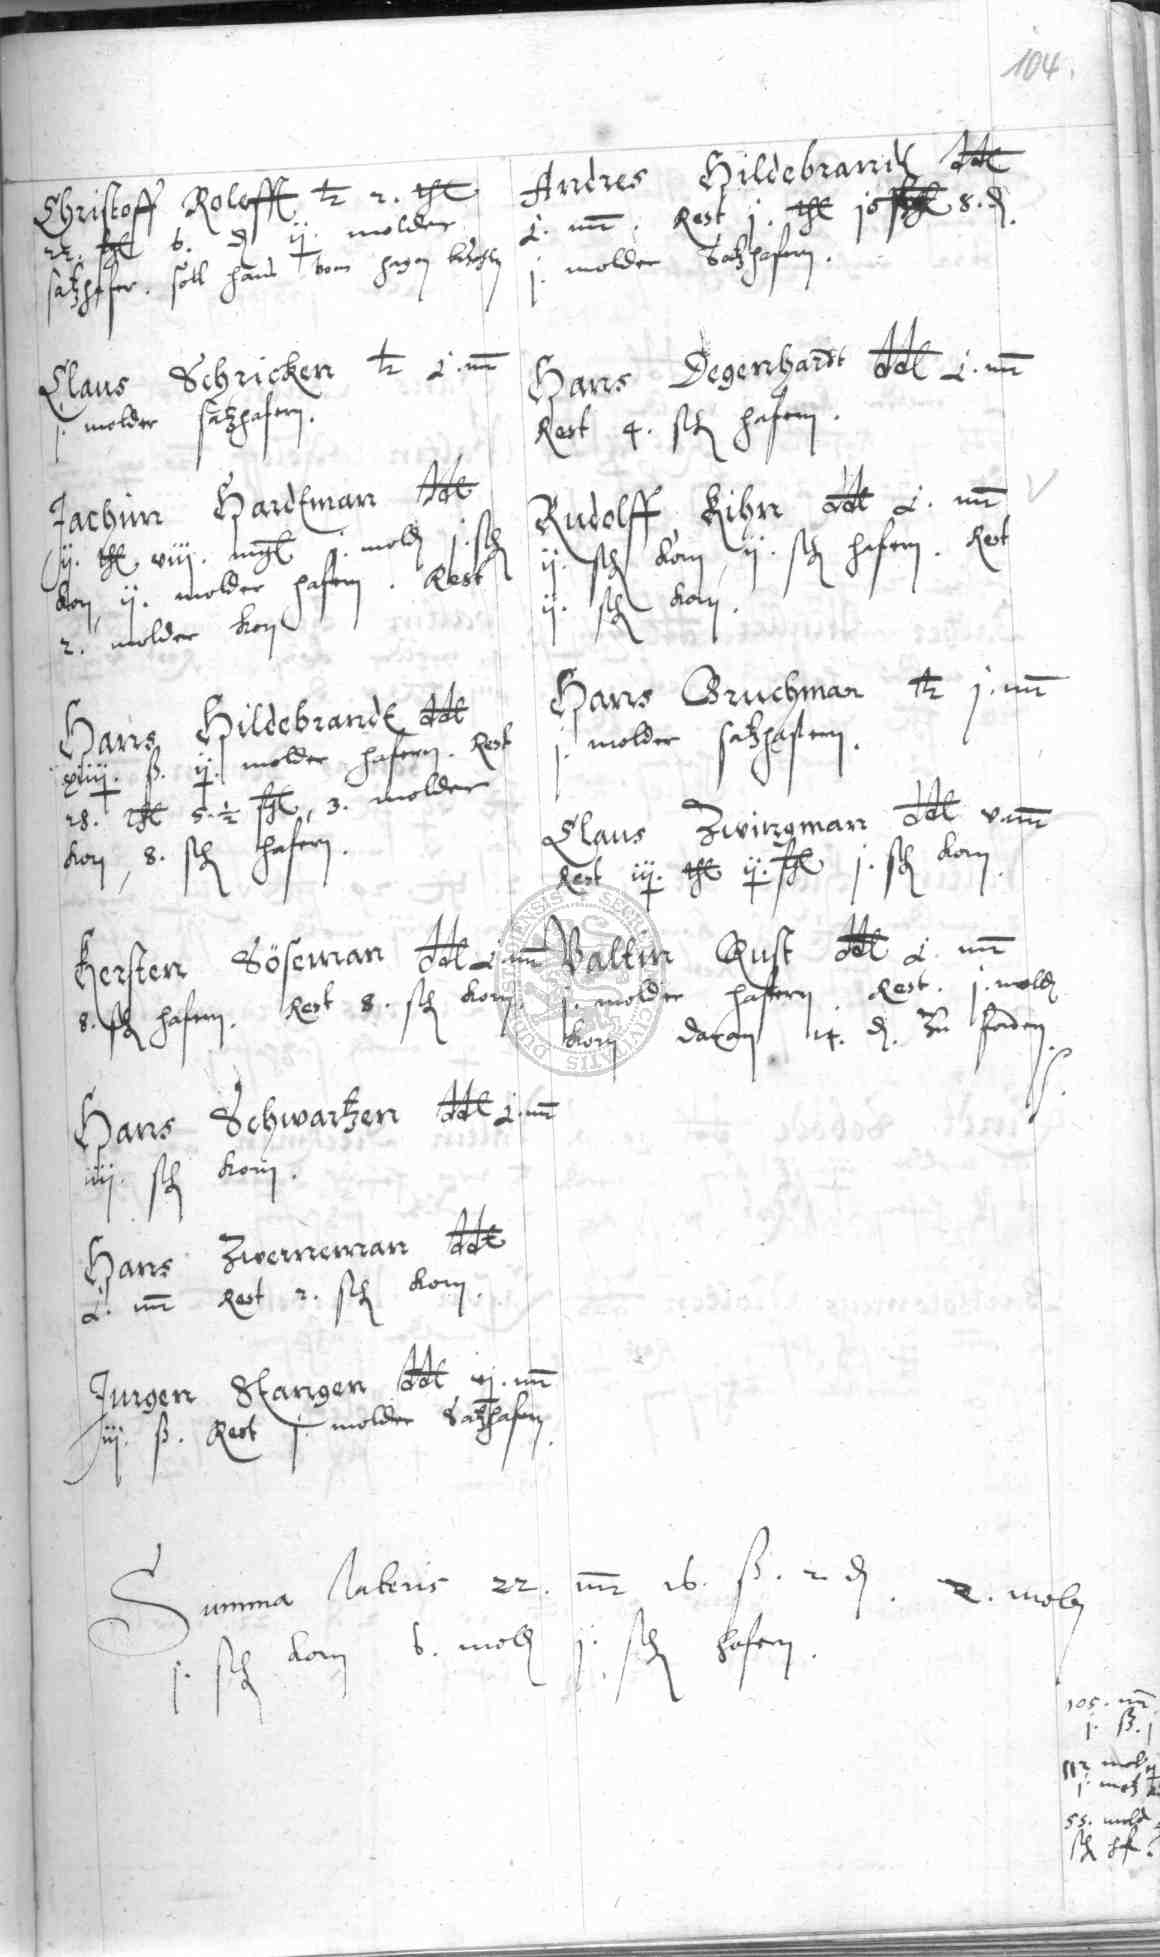 104.
Christoff Roleff tr 2. thl
22. ßhl 6. d ij. molder
satzhafer. soll hans vom hagen
Claus Schricken tr mr
j. molder satzhafern.
Jachim Hardeman ddt
ij. thl viij. mgl j. mold j. sch
korn ij. molder hafern. Rest
2. molder korn
Hans Hildebrandt ddt
xiiij. ß. ij. molder hafern. Rest
28. thl 5. ½ ßhl, 3. molder
korn, 8. sch hafern.
Kersten Söseman ddt mr
8. sch hafern. Rest 8. sch korn.
Hans Schwartzen ddt mr
iiij. sch korn.
Hans Zwerneman ddt
mr Rest 2. sch korn.
Jurgen Stangen ddt vj. mr
iij. ß. Rest j. molder Satzhafern.
Andres Hildebrandt ddt
mr. Rest j. thl 8. d.
j. molder Satzhafern.
Hans Degenhardt ddt mr
Rest 4. sch hafern.
Rudolff Kihn ddt mr
ij. sch korn, ij. sch hafern. Rest
ij. sch korn.
Hans Bruchman tr j. mr
j. molder satzhafern.
Claus Zwingman ddt v. mr
Rest iij. thl ij. ßhl j. sch korn.
Valtin Rust ddt mr
j. molder hafern. Rest. j. mold
korn daran 14. d. zu fordern.
Summa lateris 22. mr 16. ß. 2 d. 2. mold
j. sch korn 6. mold j. sch hafern.
105. mr
j. ß. j
112 mold
j. metz
55. mold
sch hf.